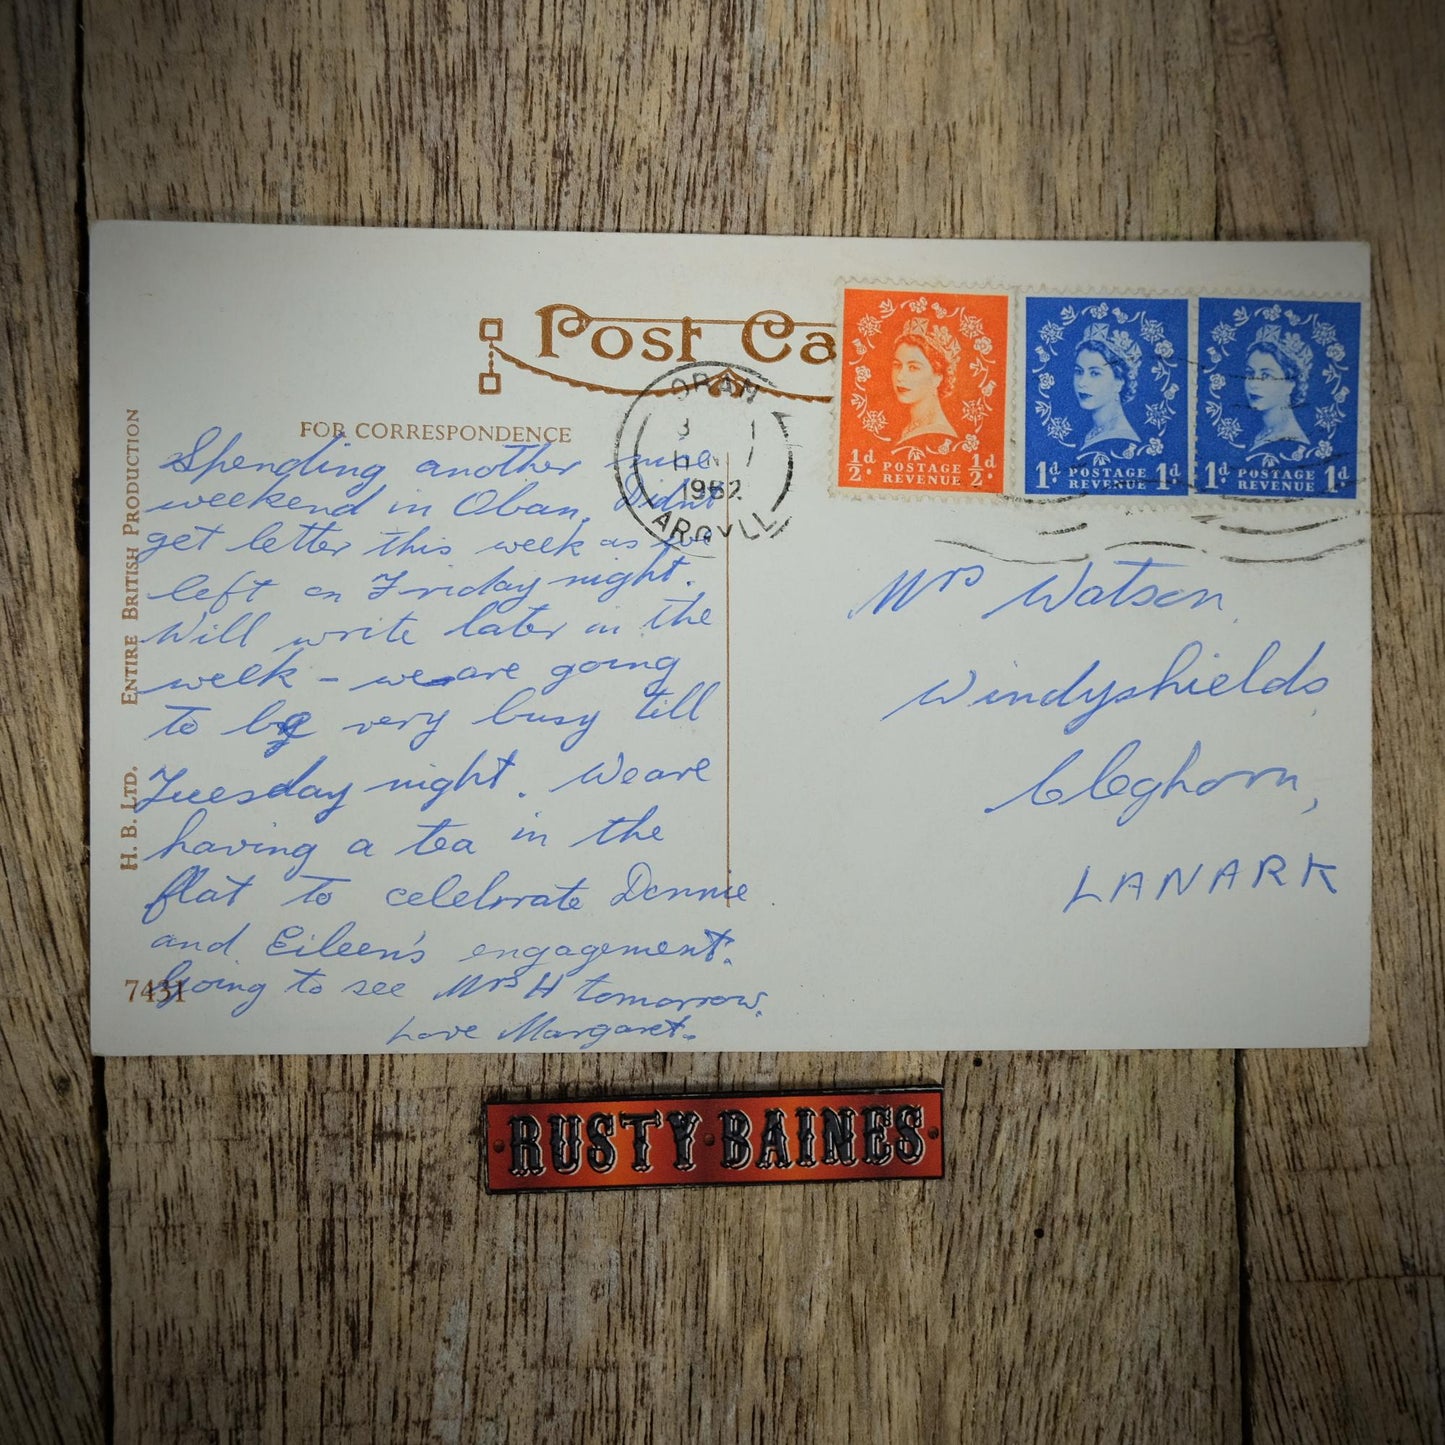 Post Ca
FOR CORRESPONDENCE
ENTIRE BRITISH PRODUCTION
H. B. LTD.
7431
OBAN
1962
ARGYLL
½d POSTAGE ½d
REVENUE
1d POSTAGE 1d
REVENUE
1d POSTAGE 1d
REVENUE
Spending another nice
weekend in Oban, Didnt
get letter this week as we
left on Friday night.
Will write later in the
week – we are going
to be very busy till
Tuesday night. We are
having a tea in the
flat to celebrate
and Eileen's engagement.
Going to see Mrs H tomorrow.
Love Margaret.
Mrs Watson
Windyshields
Cleghorn,
LANARK
RUSTY·BAINES